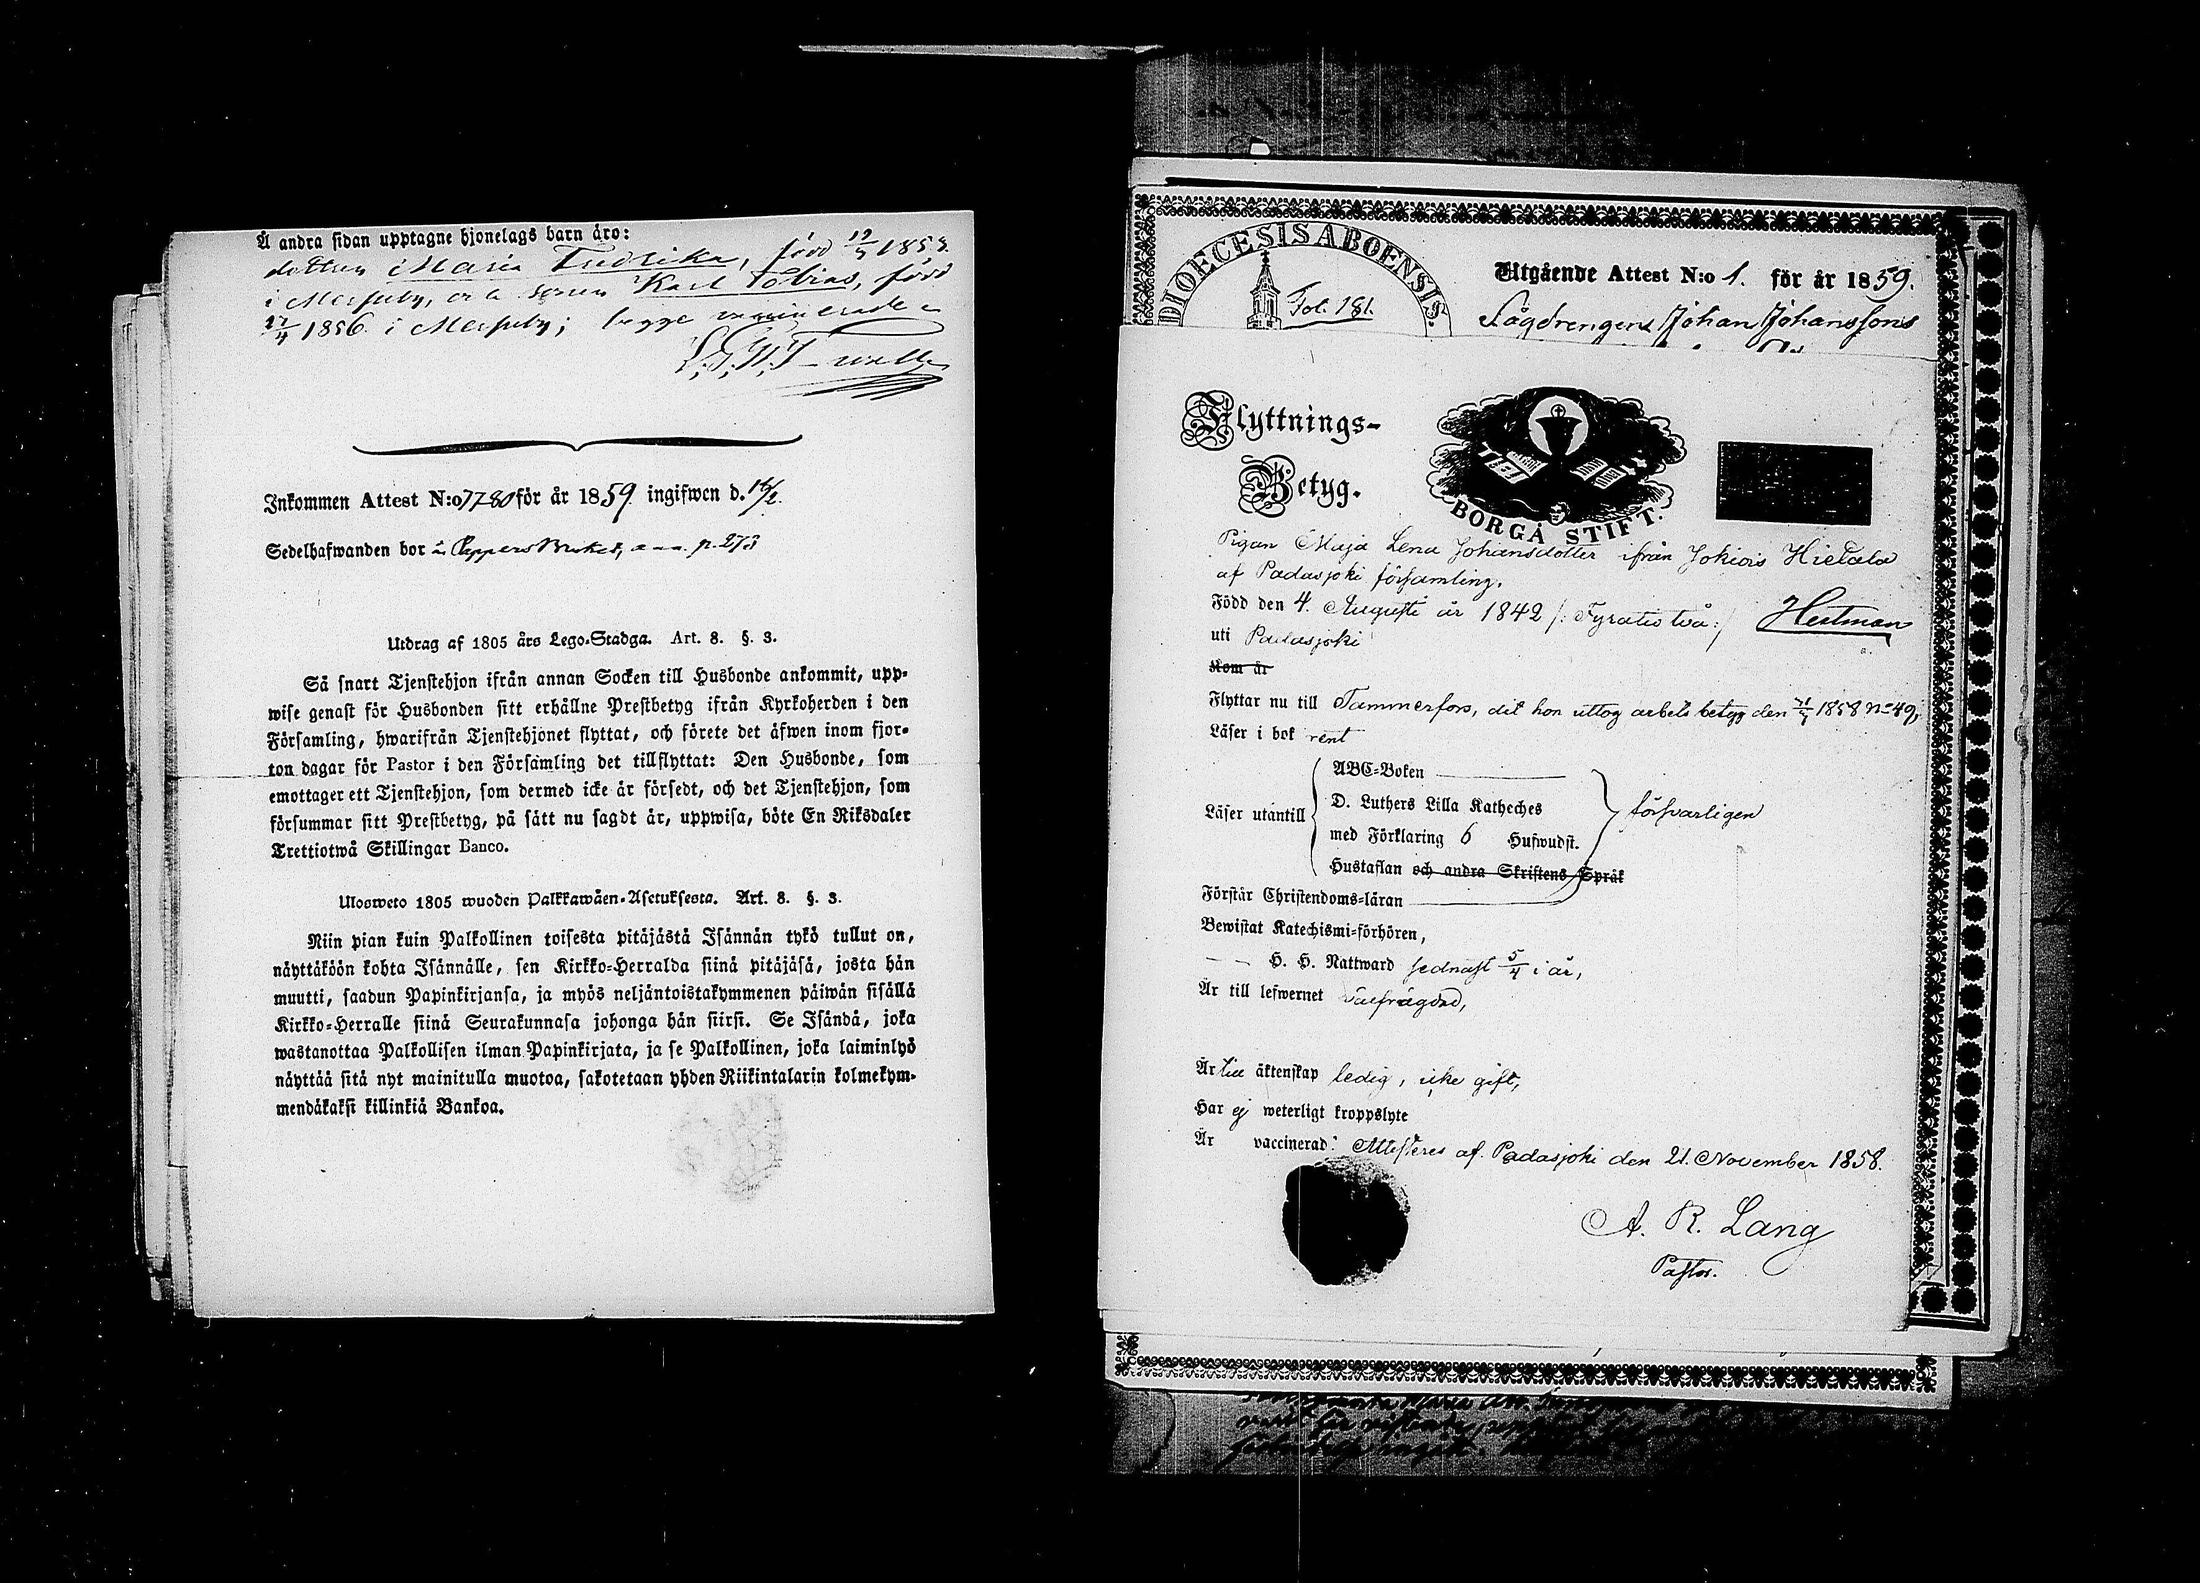 Å andra sidan upptagne hjonelags barn äro:
dottren Maria Fredrika, född 19/5 1853.
i Messuby, och sonen Karl Tobias, född
27/4 1856 i Messuby; begge vaccinerade
Inkommen Attest N:o 77-80 för år 1859 ingifwen d.
Sedelhafwanden bor p. 273
Utdrag af 1805 års Lego-Stadga. Art. 8. §. 3.
Så snart Tjenstehjon ifrån annan Socken till Husbonde ankommit, upp-
wise genast för Husbonden sitt erhållne Prestbetyg ifrån Kyrkoherden i den
Församling, hwarifrån Tjenstehjonet flyttat, och förete det äfwen inom fjor-
ton dagar för Pastor i den Församling det tillflyttat: Den Husbonde, som
emottager ett Tjenstehjon, som dermed icke är försedt, och det Tjenstehjon, som
försummar sitt Prestbetyg, på sätt nu sagdt är, uppwisa, böte En Riksdaler
Trettiotwå Skillingar Banco.
Ulosweto 1805 wuoden Palkkawäen-Asetuksesta. Art. 8. §. 3.
Niin pian kuin Palkollinen toisesta pitäjästä Isännän tykö tullut on,
näyttäköön kohta Isännälle, sen Kirkko-Herralda siinä pitäjäsä, josta hän
muutti, saadun Papinkirjansa, ja myös neljäntoistakymmenen päiwän sisällä
Kirkko-Herralle siinä Seurakunnasa johonga hän siirsi. Se Isändä, joka
wastanottaa Palkollisen ilman Papinkirjata, ja se Palkollinen, joka laiminlyö
näyttää sitä nyt mainitulla muotoa, sakotetaan yhden Riikintalarin kolmekym-
mendäkaksi killinkiä Bankoa.
DIOECESIS ABOENSIS.
Fol. 181.
Utgående Attest N:o 1. för år 1859.
Sågdrengen Johan Johansson
Flyttnings-
Betyg.
BORGÅ STIFT.
Pigan Maja Lena Johansdotter ifrån Jokiois Hietala
af Padasjoki församling.
Född den 4. Augusti år 1842 /: Fyratio två :/ Hestman
uti Padasjoki
Kom år
Flyttar nu till Tammerfors, dit hon uttog arbets betyg den 1858 No 49,
Läser i bok rent
Läser utantill
ABC-Boken
D. Luthers Lilla Katheches
med Förklaring 6 Hufwudst.
Hustaflan och andra Skriftens Språk
försvarligen
Förstår Christendoms-läran
Bewistat Katechismi-förhören,
— — H. H. Nattward sednast 5/4 i år,
Är till lefwernet oaefrägdad,
Är till äktenskap ledig, icke gift,
Har ej weterligt kroppslyte
Är vaccinerad: Attesteres af Padasjoki den 21. November 1858.
A. R. Lang
Pastor.